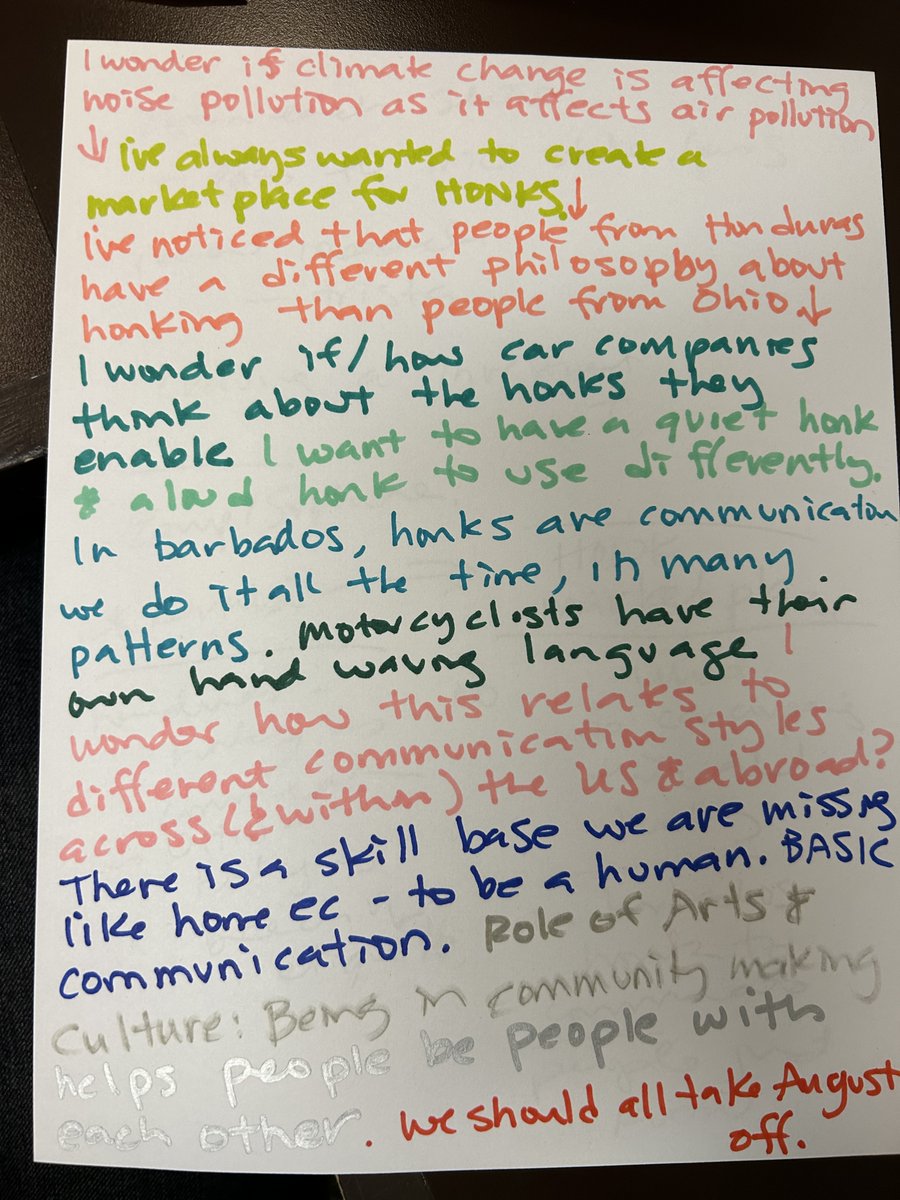 I wonder if climate change is affecting
noise pollution as it affects air pollution
↓ Ive always wanted to create a
market place for HONKS.↓
Ive noticed that people from Honduras
have a different philosopby about
honking than people from Ohio↓
I wonder if/how car companies
think about the honks they
enable I want to have a quiet honk
& a loud honk to use differently.
In barbados, honks are communication
we do it all the time, in many
patterns. Motorcyclists have their
own hand waving language I
wonder how this relates to
different communication styles
across (& within) the US & abroad?
There is a skill base we are missing
like home ec - to be a human. BASIC
communication. Role of Arts &
Culture: Being in community making
helps people be people with
each other. We should all take August
off.